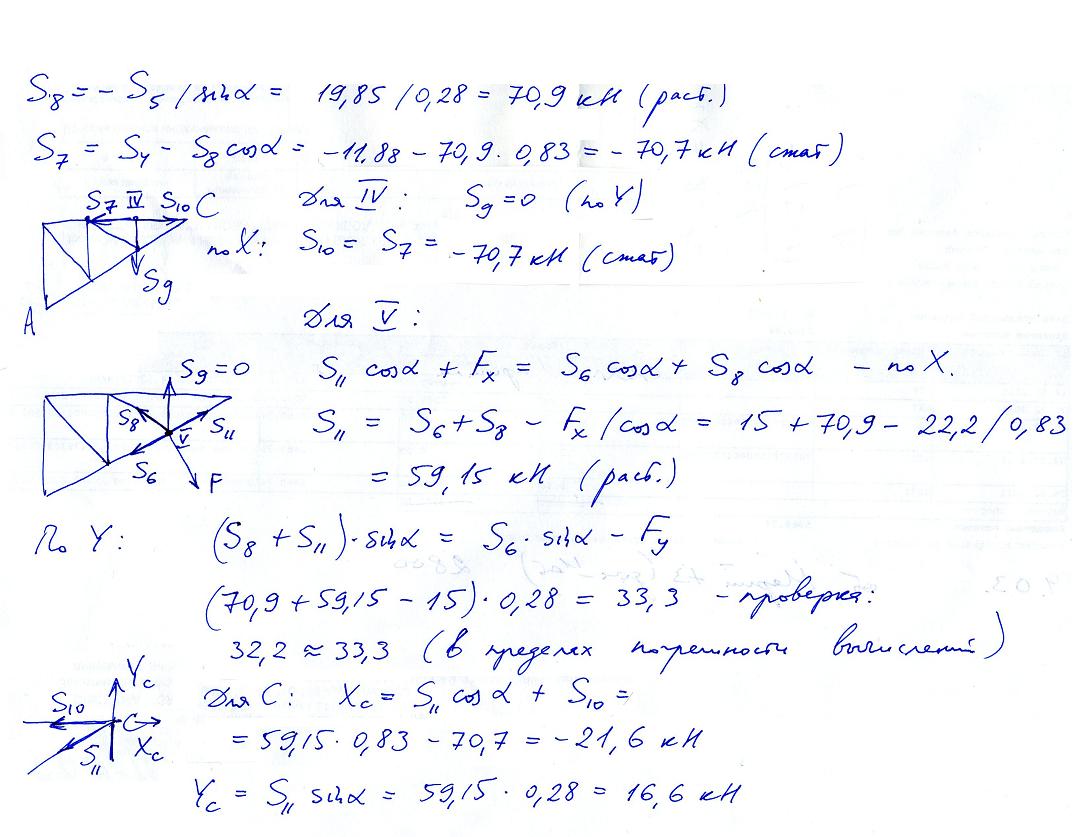 S₈ = - S₅ / sin α = 19,85 / 0,28 = 70,9 кН (раст.)
S₇ = S₄ - S₈ cos α = -11,88 - 70,9 · 0,83 = - 70,7 кН (сжат)
S₇ IV S₁₀ C
Для IV: S₉ = 0 (по Y)
по X: S₁₀ = S₇ = -70,7 кН (сжат)
S₉
A
Для V:
S₉ = 0
S₁₁ cos α + Fₓ = S₆ cos α + S₈ cos α - по X.
S₈ V S₁₁
S₁₁ = S₆ + S₈ - Fₓ / cos α = 15 + 70,9 - 22,2 / 0,83
S₆ F
= 59,15 кН (раст.)
По Y: (S₈ + S₁₁) · sin α = S₆ · sin α - Fy
(70,9 + 59,15 - 15) · 0,28 = 33,3 - проверка:
32,2 ≈ 33,3 (в пределах погрешности вычислений)
Yc
S₁₀ C
S₁₁ Xc
Для C: Xc = S₁₁ cos α + S₁₀ =
= 59,15 · 0,83 - 70,7 = -21,6 кН
Yc = S₁₁ sin α = 59,15 · 0,28 = 16,6 кН